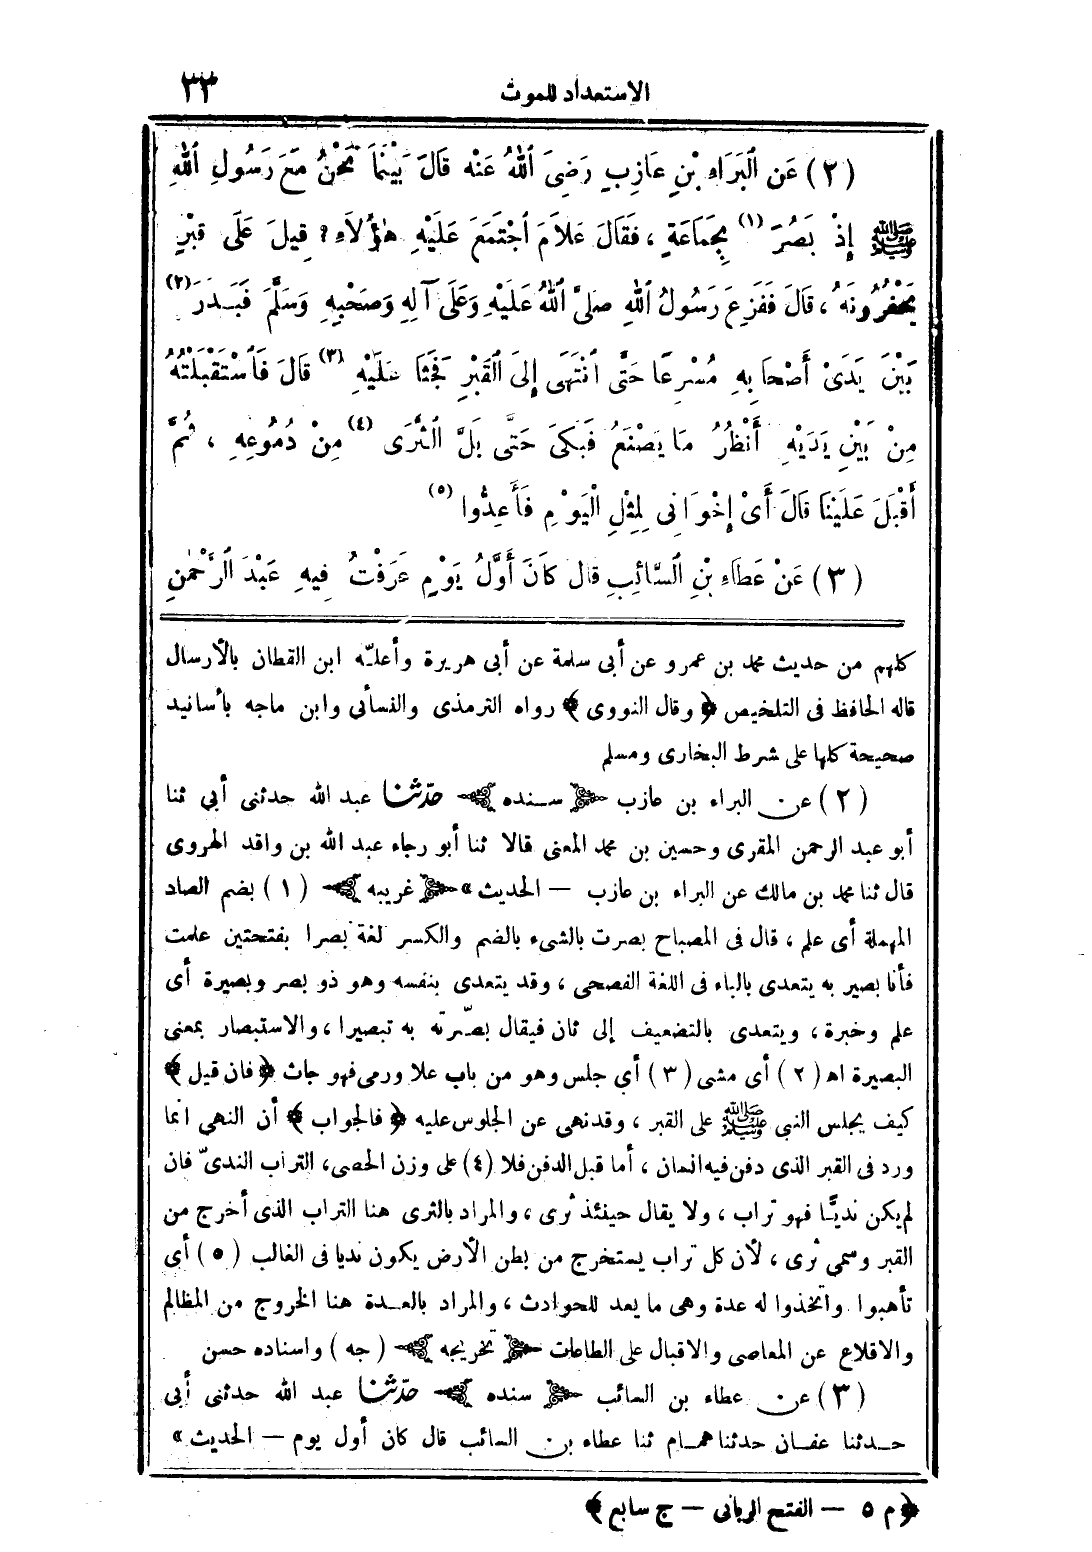 الاستعداد للموت ٣٣
(٢) عَنِ ٱلبَرَاءِ بْنِ عَازِبٍ رَضِىَ ٱللهُ عَنْه قَالَ بَيْنَمَا نَحْنُ مَعَ رَسُولِ ٱللهِ
ﷺ إِذْ بَصُرَ (١) بِجَمَاعَةٍ ، فَقَالَ عَلاَمَ ٱجْتَمَعَ عَلَيْهِ هٰؤُلاَءِ ؟ قِيلَ عَلَى قَبْرٍ
يَحْفُرُونَهُ ، قَالَ فَفَزِعَ رَسُولُ ٱللهِ صَلَّى ٱللهُ عَلَيْهِ وَعَلَى آلِهِ وَصَحْبِهِ وَسَلَّمَ فَبَدَرَ (٢)
بَيْنَ يَدَىْ أَصْحَابِهِ مُسْرِعًا حَتَّى ٱنْتَهَى إِلَى ٱلقَبْرِ فَجَثَا عَلَيْهِ (٣) قَالَ فَٱسْتَقْبَلْتُهُ
مِنْ بَيْنِ يَدَيْهِ أَنْظُرُ مَا يَصْنَعُ فَبَكَى حَتَّى بَلَّ ٱلثَّرَى (٤) مِنْ دُمُوعِهِ ، ثُمَّ
أَقْبَلَ عَلَيْنَا قَالَ أَىْ إِخْوَانِى لِمِثْلِ الْيَوْمِ فَأَعِدُّوا (٥)
(٣) عَنْ عَطَاءِ بْنِ ٱلسَّائِبِ قَالَ كَانَ أَوَّلُ يَوْمٍ عَرَفْتُ فِيهِ عَبْدَ ٱلرَّحْمٰنِ
كلهم من حديث محمد بن عمرو عن أبى سلمة عن أبى هريرة وأعلّه ابن القطان بالأرسال
قاله الحافظ فى التلخيص ﴿ وقال النووى ﴾ رواه الترمذى والنسأئى وابن ماجه بأسانيد
صحيحة كلها على شرط البخارى ومسلم
(٢) عن البراء بن عازب ﴿ سنده ﴾ حدّثنا عبد الله حدثنى أبي ثنا
أبو عبد الرحمن المقرى وحسين بن محمد المعنى قالا ثنا أبو رجاء عبد الله بن واقد الهروى
قال ثنا محمد بن مالك عن البراء بن عازب — الحديث » ﴿ غريبه ﴾ (١) بضم الصاد
المهملة أى علم ، قال فى المصباح بصرت بالشىء بالضم والكسر لغة بصرا بفتحتين علمت
فأنا بصير به يتعدى بالباء فى اللغة الفصحى ، وقد يتعدى بنفسه وهو ذو بصر وبصيرة أى
علم وخبرة ، ويتعدى بالتضعيف إلى ثان فيقال بصّرته به تبصيرا ، والاستبصار بمعنى
البصيرة اه (٢) أى مشى (٣) أي جلس وهو من باب علا ورمى فهو جاث ﴿ فان قيل ﴾
كيف يجلس النبى ﷺ على القبر ، وقد نهى عن الجلوس عليه ﴿ فالجواب ﴾ أن النهى انما
ورد فى القبر الذى دفن فيه انسان ، أما قبل الدفن فلا (٤) على وزن الحصى ، التراب الندىّ فان
لم يكن نديًّا فهو تراب ، ولا يقال حينئذ ثرى ، والمراد بالثرى هنا التراب الذى أخرج من
القبر وسمى ثرى ، لأن كل تراب يستخرج من بطن الأرض يكون نديا فى الغالب (٥) أى
تأهبوا واتخذوا له عدة وهى ما يعد للحوادث ، والمراد بالعدة هنا الخروج من المظالم
والاقلاع عن المعاصى والاقبال على الطاعات ﴿ تخريجه ﴾ (جه) واسناده حسن
(٣) عن عطاء بن السائب ﴿ سنده ﴾ حدّثنا عبد الله حدثنى أبى
حدثنا عفان حدثنا همام ثنا عطاء بن السائب قال كان أول يوم — الحديث »
﴿ م ٥ — الفتح الربانى — ج سابع ﴾